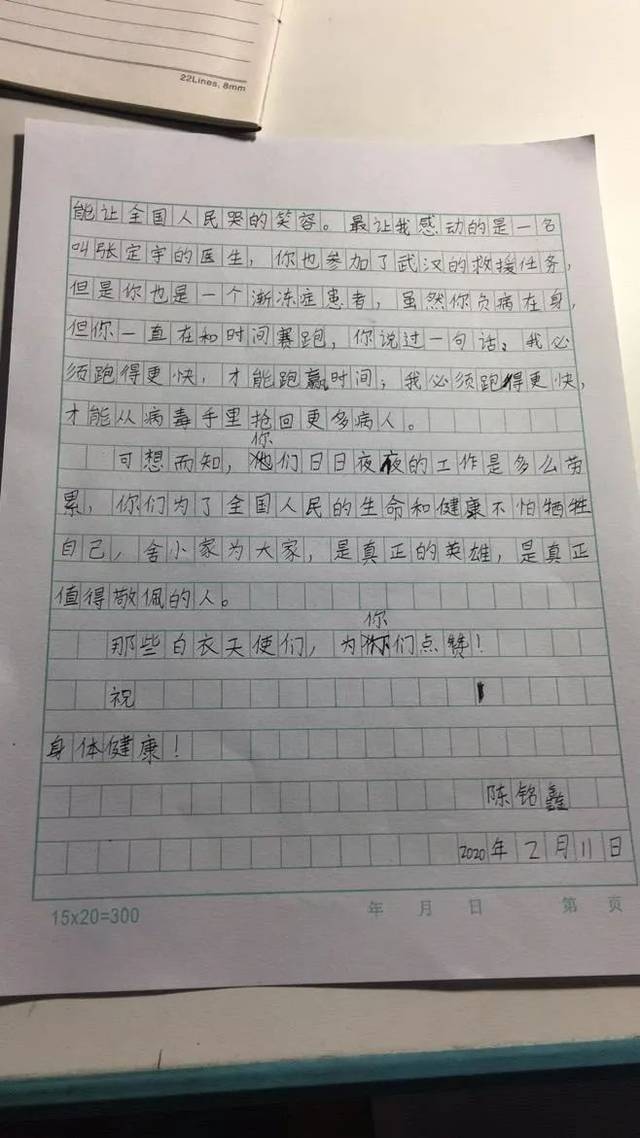 22Lines, 8mm
能让全国人民哭的笑容。最让我感动的是一名
叫张定宇的医生，你也参加了武汉的救援任务，
但是你也是一个渐冻症患者，虽然你负病在身，
但你一直在和时间赛跑，你说过一句话：我必
须跑得更快，才能跑赢时间；我必须跑得更快，
才能从病毒手里抢回更多病人。
可想而知，你们日日夜夜的工作是多么劳
累，你们为了全国人民的生命和健康不怕牺牲
自己，舍小家为大家，是真正的英雄，是真正
值得敬佩的人。
那些白衣天使们，为你们点赞！
祝
身体健康！
陈铭鑫
2020年2月11日
15x20=300 年 月 日 第 页